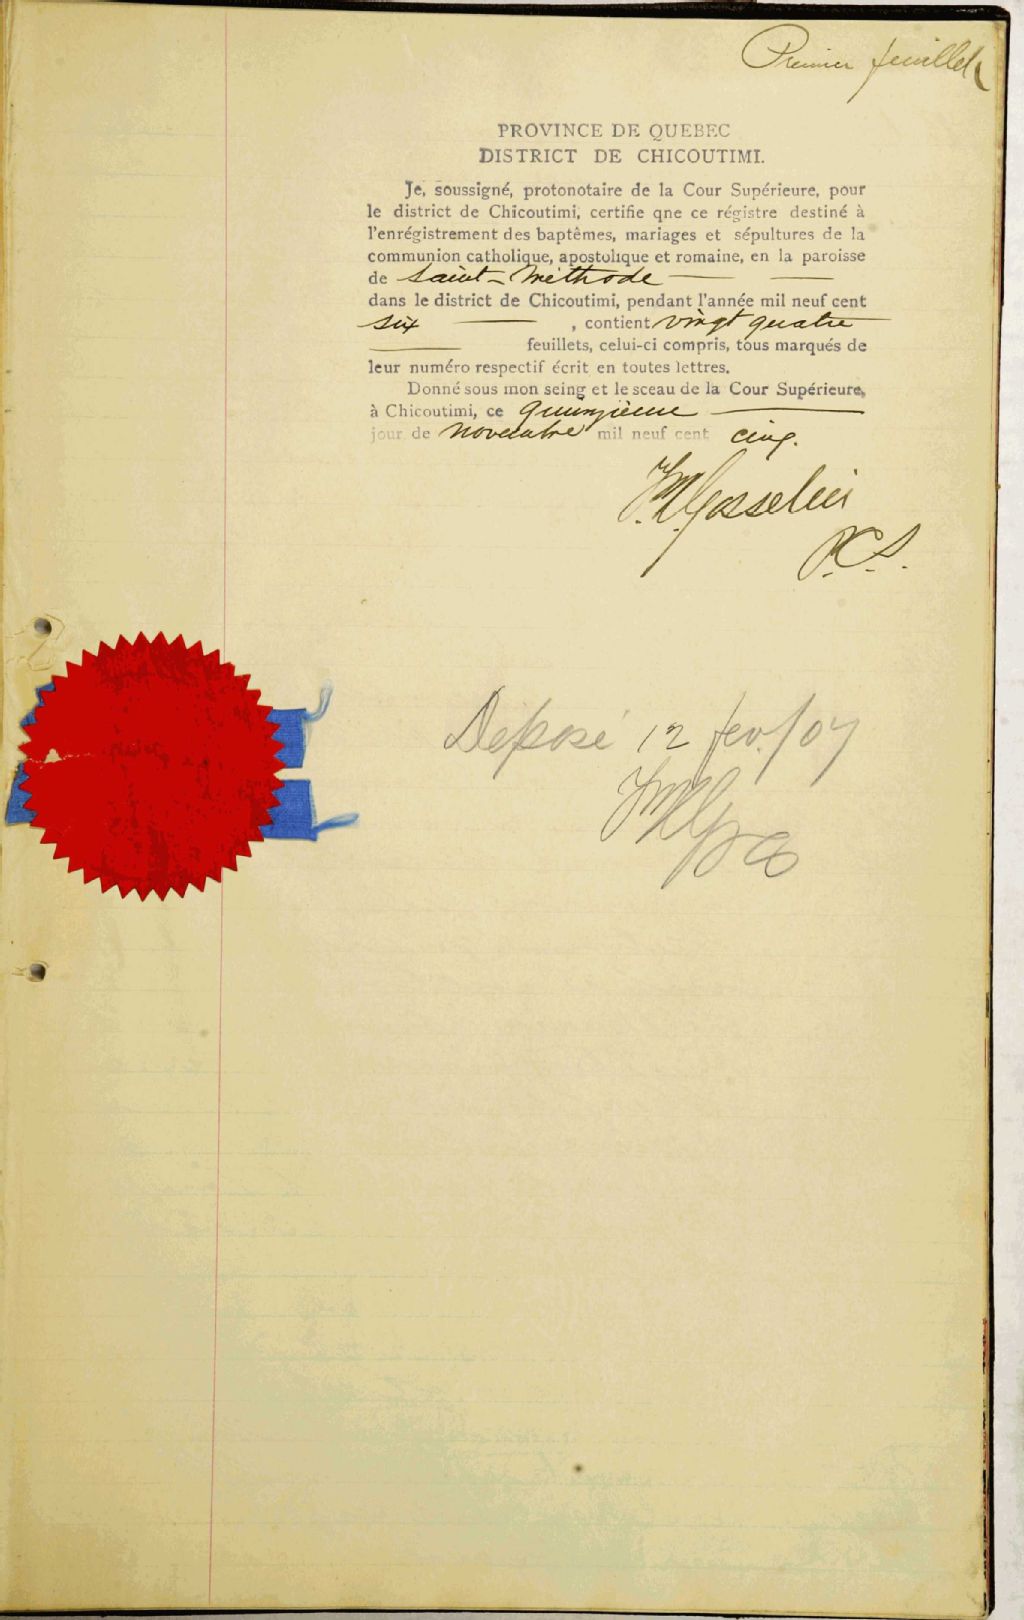 Premier feuillet
PROVINCE DE QUEBEC
DISTRICT DE CHICOUTIMI.
Je, soussigné, protonotaire de la Cour Supérieure, pour
le district de Chicoutimi, certifie qne ce régistre destiné à
l'enrégistrement des baptêmes, mariages et sépultures de la
communion catholique, apostolique et romaine, en la paroisse
de Saint-Méthode
dans le district de Chicoutimi, pendant l'année mil neuf cent
six , contient vingt quatre
feuillets, celui-ci compris, tous marqués de
leur numéro respectif écrit en toutes lettres.
Donné sous mon seing et le sceau de la Cour Supérieure,
à Chicoutimi, ce quinzième
jour de novembre mil neuf cent cinq.
Gosselin
P.C.S.
Déposé 12 fev./07